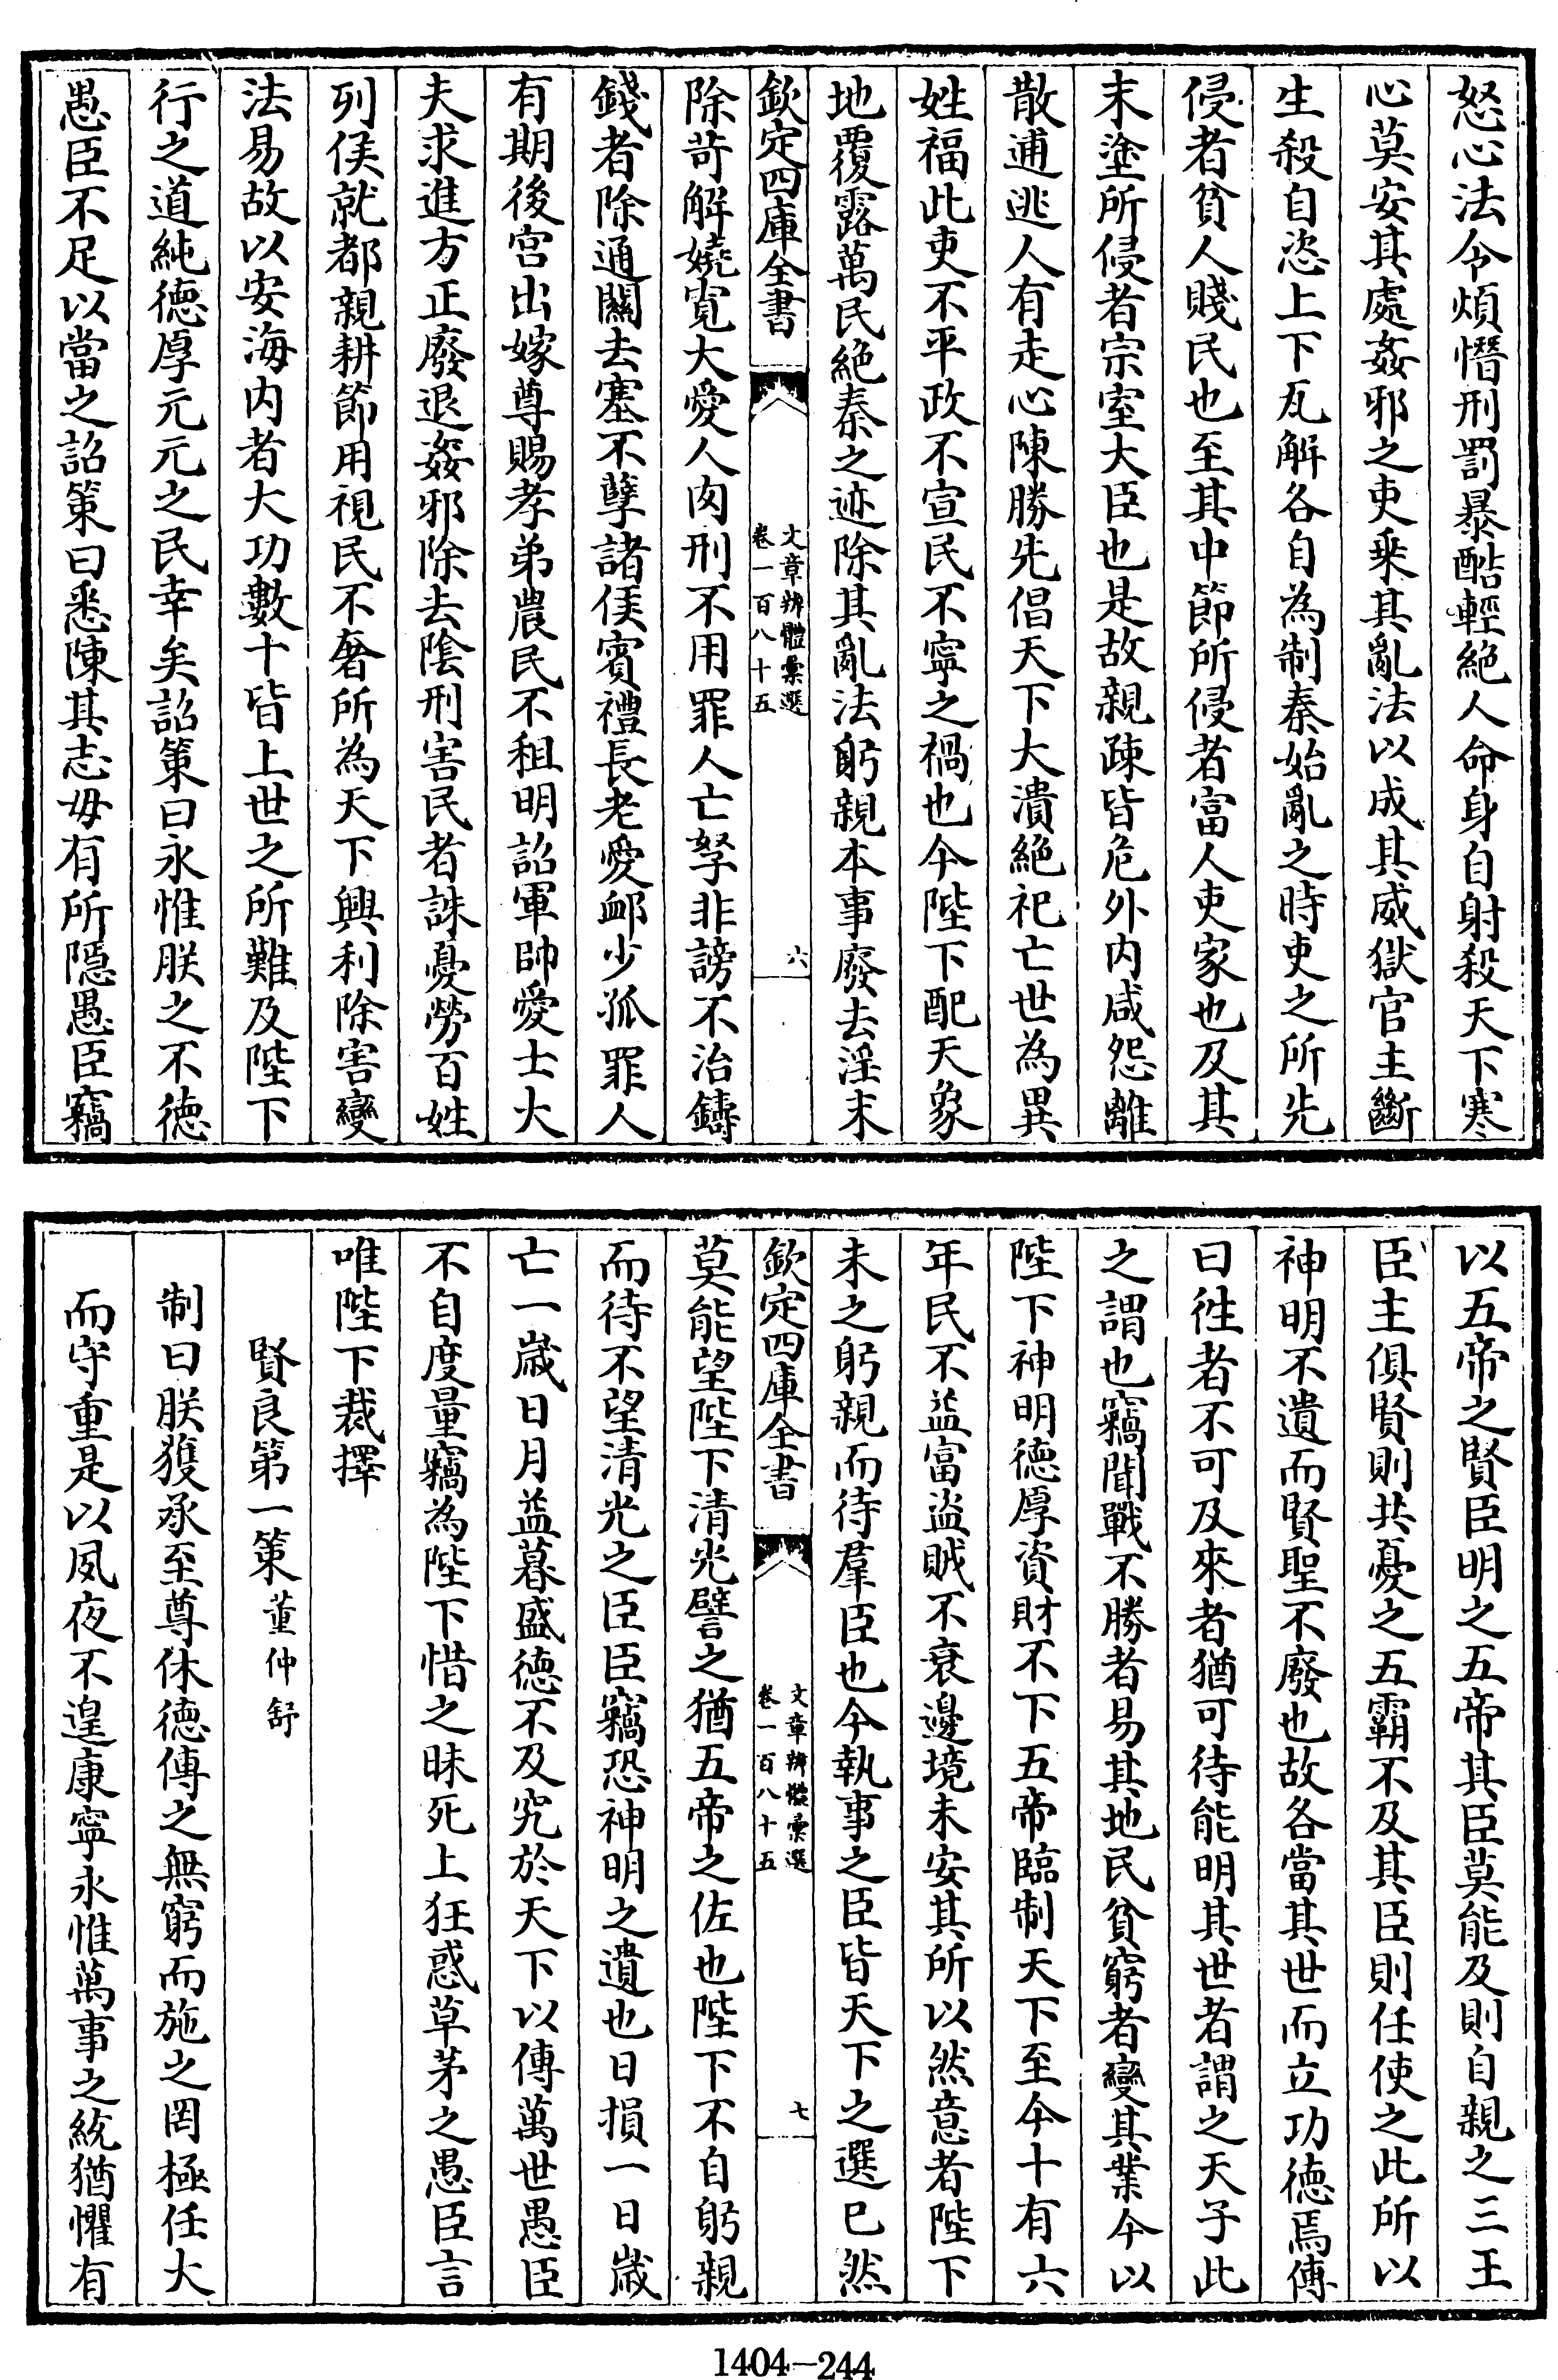 怒心法令煩憯刑罰暴酷輕絶人命身自射殺天下寒
心莫安其處姦邪之吏乘其亂法以成其威獄官主斷
生殺自恣上下瓦解各自為制秦始亂之時吏之所先
侵者貧人賤民也至其中節所侵者富人吏家也及其
末塗所侵者宗室大臣也是故親疎皆危外内咸怨離
散逋逃人有走心陳勝先倡天下大潰絶祀亡世為異
姓福此吏不平政不宣民不寧之禍也今陛下配天象
地覆露萬民絶秦之迹除其亂法躬親本事廢去淫末
欽定四庫全書
文章辨體彙選
卷一百八十五
六
除苛解嬈寛大愛人肉刑不用罪人亡帑非謗不治鑄
錢者除通關去塞不孽諸侯賓禮長老愛䘏少孤罪人
有期後宫出嫁尊賜孝弟農民不租明詔軍帥愛士大
夫求進方正廢退姦邪除去陰刑害民者誅憂勞百姓
列侯就都親耕節用視民不奢所為天下興利除害變
法易故以安海内者大功數十皆上世之所難及陛下
行之道純徳厚元元之民幸矣詔策曰永惟朕之不徳
愚臣不足以當之詔策曰悉陳其志毋有所隠愚臣竊
以五帝之賢臣明之五帝其臣莫能及則自親之三王
臣主俱賢則共憂之五霸不及其臣則任使之此所以
神明不遺而賢聖不廢也故各當其世而立功徳焉傳
曰徃者不可及來者猶可待能明其世者謂之天子此
之謂也竊聞戰不勝者易其地民貧窮者變其業今以
陛下神明徳厚資財不下五帝臨制天下至今十有六
年民不益富盗賊不衰邊境未安其所以然意者陛下
未之躬親而待羣臣也今執事之臣皆天下之選已然
欽定四庫全書
文章辨體彙選
卷一百八十五
七
莫能望陛下清光譬之猶五帝之佐也陛下不自躬親
而待不望清光之臣臣竊恐神明之遺也日損一日歳
亡一歳日月益暮盛徳不及究於天下以傳萬世愚臣
不自度量竊為陛下惜之昧死上狂惑草茅之愚臣言
唯陛下裁擇
賢良第一策 董仲舒
制曰朕獲承至尊休徳傳之無窮而施之罔極任大
而守重是以夙夜不遑康寧永惟萬事之統猶懼有
1404-244